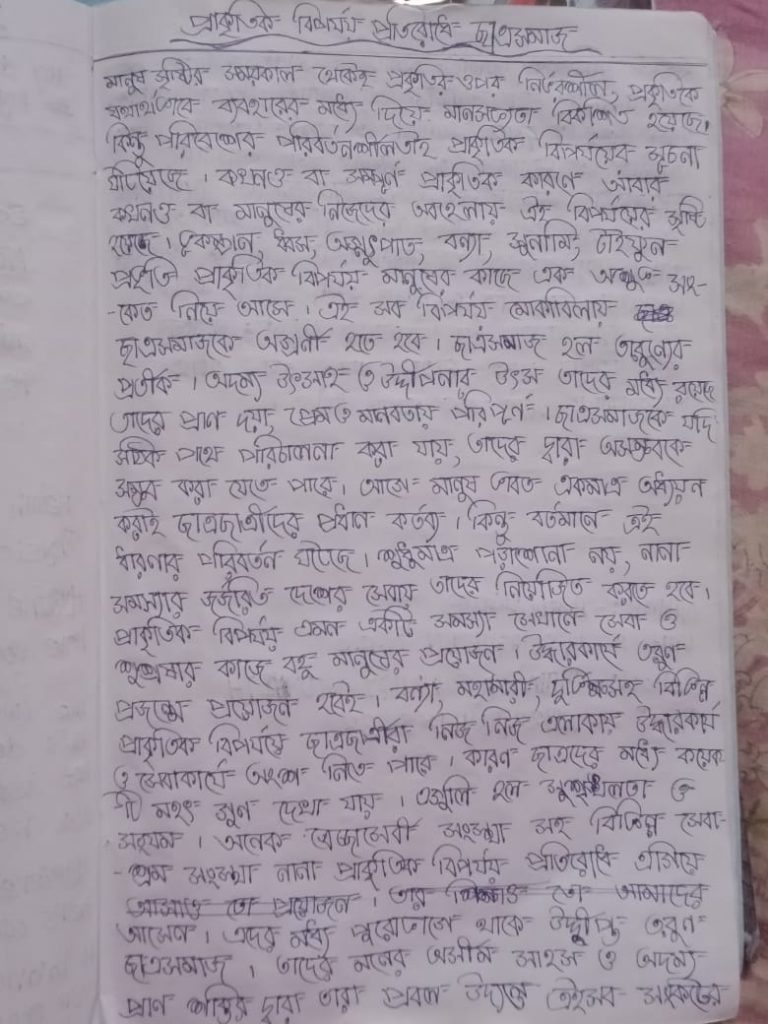 প্রাকৃতিক বিপর্যয় প্রতিরোধে ছাত্রসমাজ
মানুষ সৃষ্টির সময়কাল থেকেই প্রকৃতির ওপর নির্ভরশীল, প্রকৃতিকে
যথার্থভাবে ব্যবহারের মধ্য দিয়ে মানবসভ্যতা বিকশিত হয়েছে,
কিন্তু পরিবেশের পরিবর্তনশীলতাই প্রাকৃতিক বিপর্যয়ের সূচনা
ঘটিয়েছে । কখনও বা সম্পূর্ন প্রাকৃতিক কারণে আবার
কখনও বা মানুষের নিজেদের অবহেলায় এই বিপর্যয়ের সৃষ্টি
হয়েছে । ভূকম্পন, ধ্বস, অগ্ন্যুৎপাত, বন্যা, সুনামি, টাইফুন
প্রভৃতি প্রাকৃতিক বিপর্যয় মানুষের কাছে এক অশুভ সং-
-কেত নিয়ে আসে । এই সব বিপর্যয় মোকাবিলায়
ছাত্রসমাজকে অগ্রনী হতে হবে । ছাত্রসমাজ হল তারুণ্যের
প্রতীক । অদম্য উৎসাহ ও উদ্দীপনার উৎস তাদের মধ্যে রয়েছে
তাদের প্রাণ দয়া, প্রেম ও মানবতায় পরিপূর্ণ । ছাত্রসমাজকে যদি
সঠিক পথে পরিচালনা করা যায়, তাদের দ্বারা অসম্ভবকে
সম্ভব করা যেতে পারে । আগে মানুষ ভাবত একমাত্র অধ্যয়ন
করাই ছাত্রছাত্রীদের প্রধান কর্তব্য । কিন্তু বর্তমানে এই
ধারণার পরিবর্তন ঘটেছে । শুধুমাত্র পড়াশোনা নয়, নানা
সমস্যায় জর্জরিত দেশের সেবায় তাদের নিয়োজিত করতে হবে ।
প্রাকৃতিক বিপর্যয় এমন একটি সমস্যা যেখানে সেবা ও
শুশ্রূষার কাজে বহু মানুষের প্রয়োজন । উদ্ধারকার্যে তরুণ
প্রজন্মের প্রয়োজন হবেই । বন্যা, মহামারী, দুর্ভিক্ষসহ বিভিন্ন
প্রাকৃতিক বিপর্যয়ে ছাত্রছাত্রীরা নিজ নিজ এলাকায় উদ্ধারকার্য
ও সেবাকার্যে অংশ নিতে পারে । কারণ ছাত্রদের মধ্যে কয়েক
টি মহৎ গুন দেখা যায় । এগুলি হল সুশৃঙ্খলতা ও
সংযম । অনেক স্বেচ্ছাসেবী সংস্থা সহ বিভিন্ন সেবা-
-শ্রম সংস্থা নানা প্রাকৃতিক বিপর্যয় প্রতিরোধে এগিয়ে
আসেন । এদের মধ্যে পুরোভাগে থাকে উদ্দীপ্ত তরুণ
ছাত্রসমাজ । তাদের মনের অসীম সাহস ও অদম্য
প্রাণ শক্তির দ্বারা তারা প্রবল উদ্যমে এইসব সংকটের